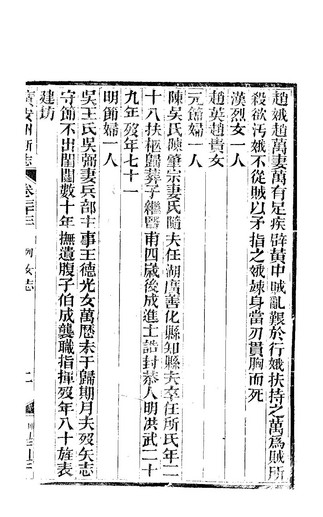 趙娥趙萬妻萬有足疾辟黃中賊亂艱於行娥扶持之萬爲賊所
殺欲汚娥不從賊以矛指之娥竦身當刃貫胸而死
漢烈女一人
趙英趙貴女
元節婦一人
陳吳氏陳肇宗妻氏隨夫任湖廣善化縣知縣夫卒任所氏年二
十八扶柩歸葬子繼暨甫四歲後成進士誥封恭人明洪武二十
九年歿年七十一
明節婦一人
吳王氏吳弼妻兵部主事王德光女萬歷末于歸期月夫歿矢志
守節不出閨閫數十年撫遺腹子伯成襲職指揮歿年八十旌表
建坊
廣安州新志 卷三十三 列女志 二